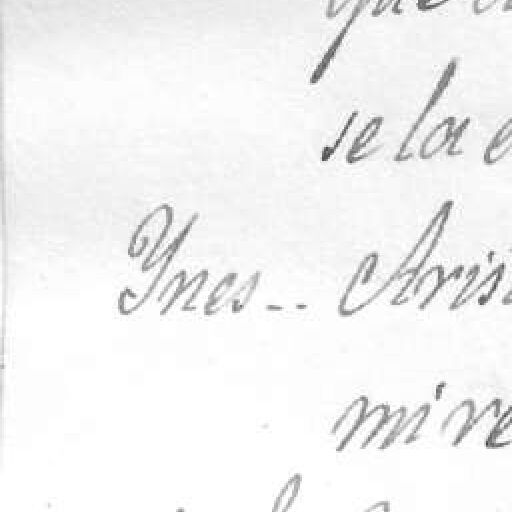 que
se la
Ynes -- Aris
mi re